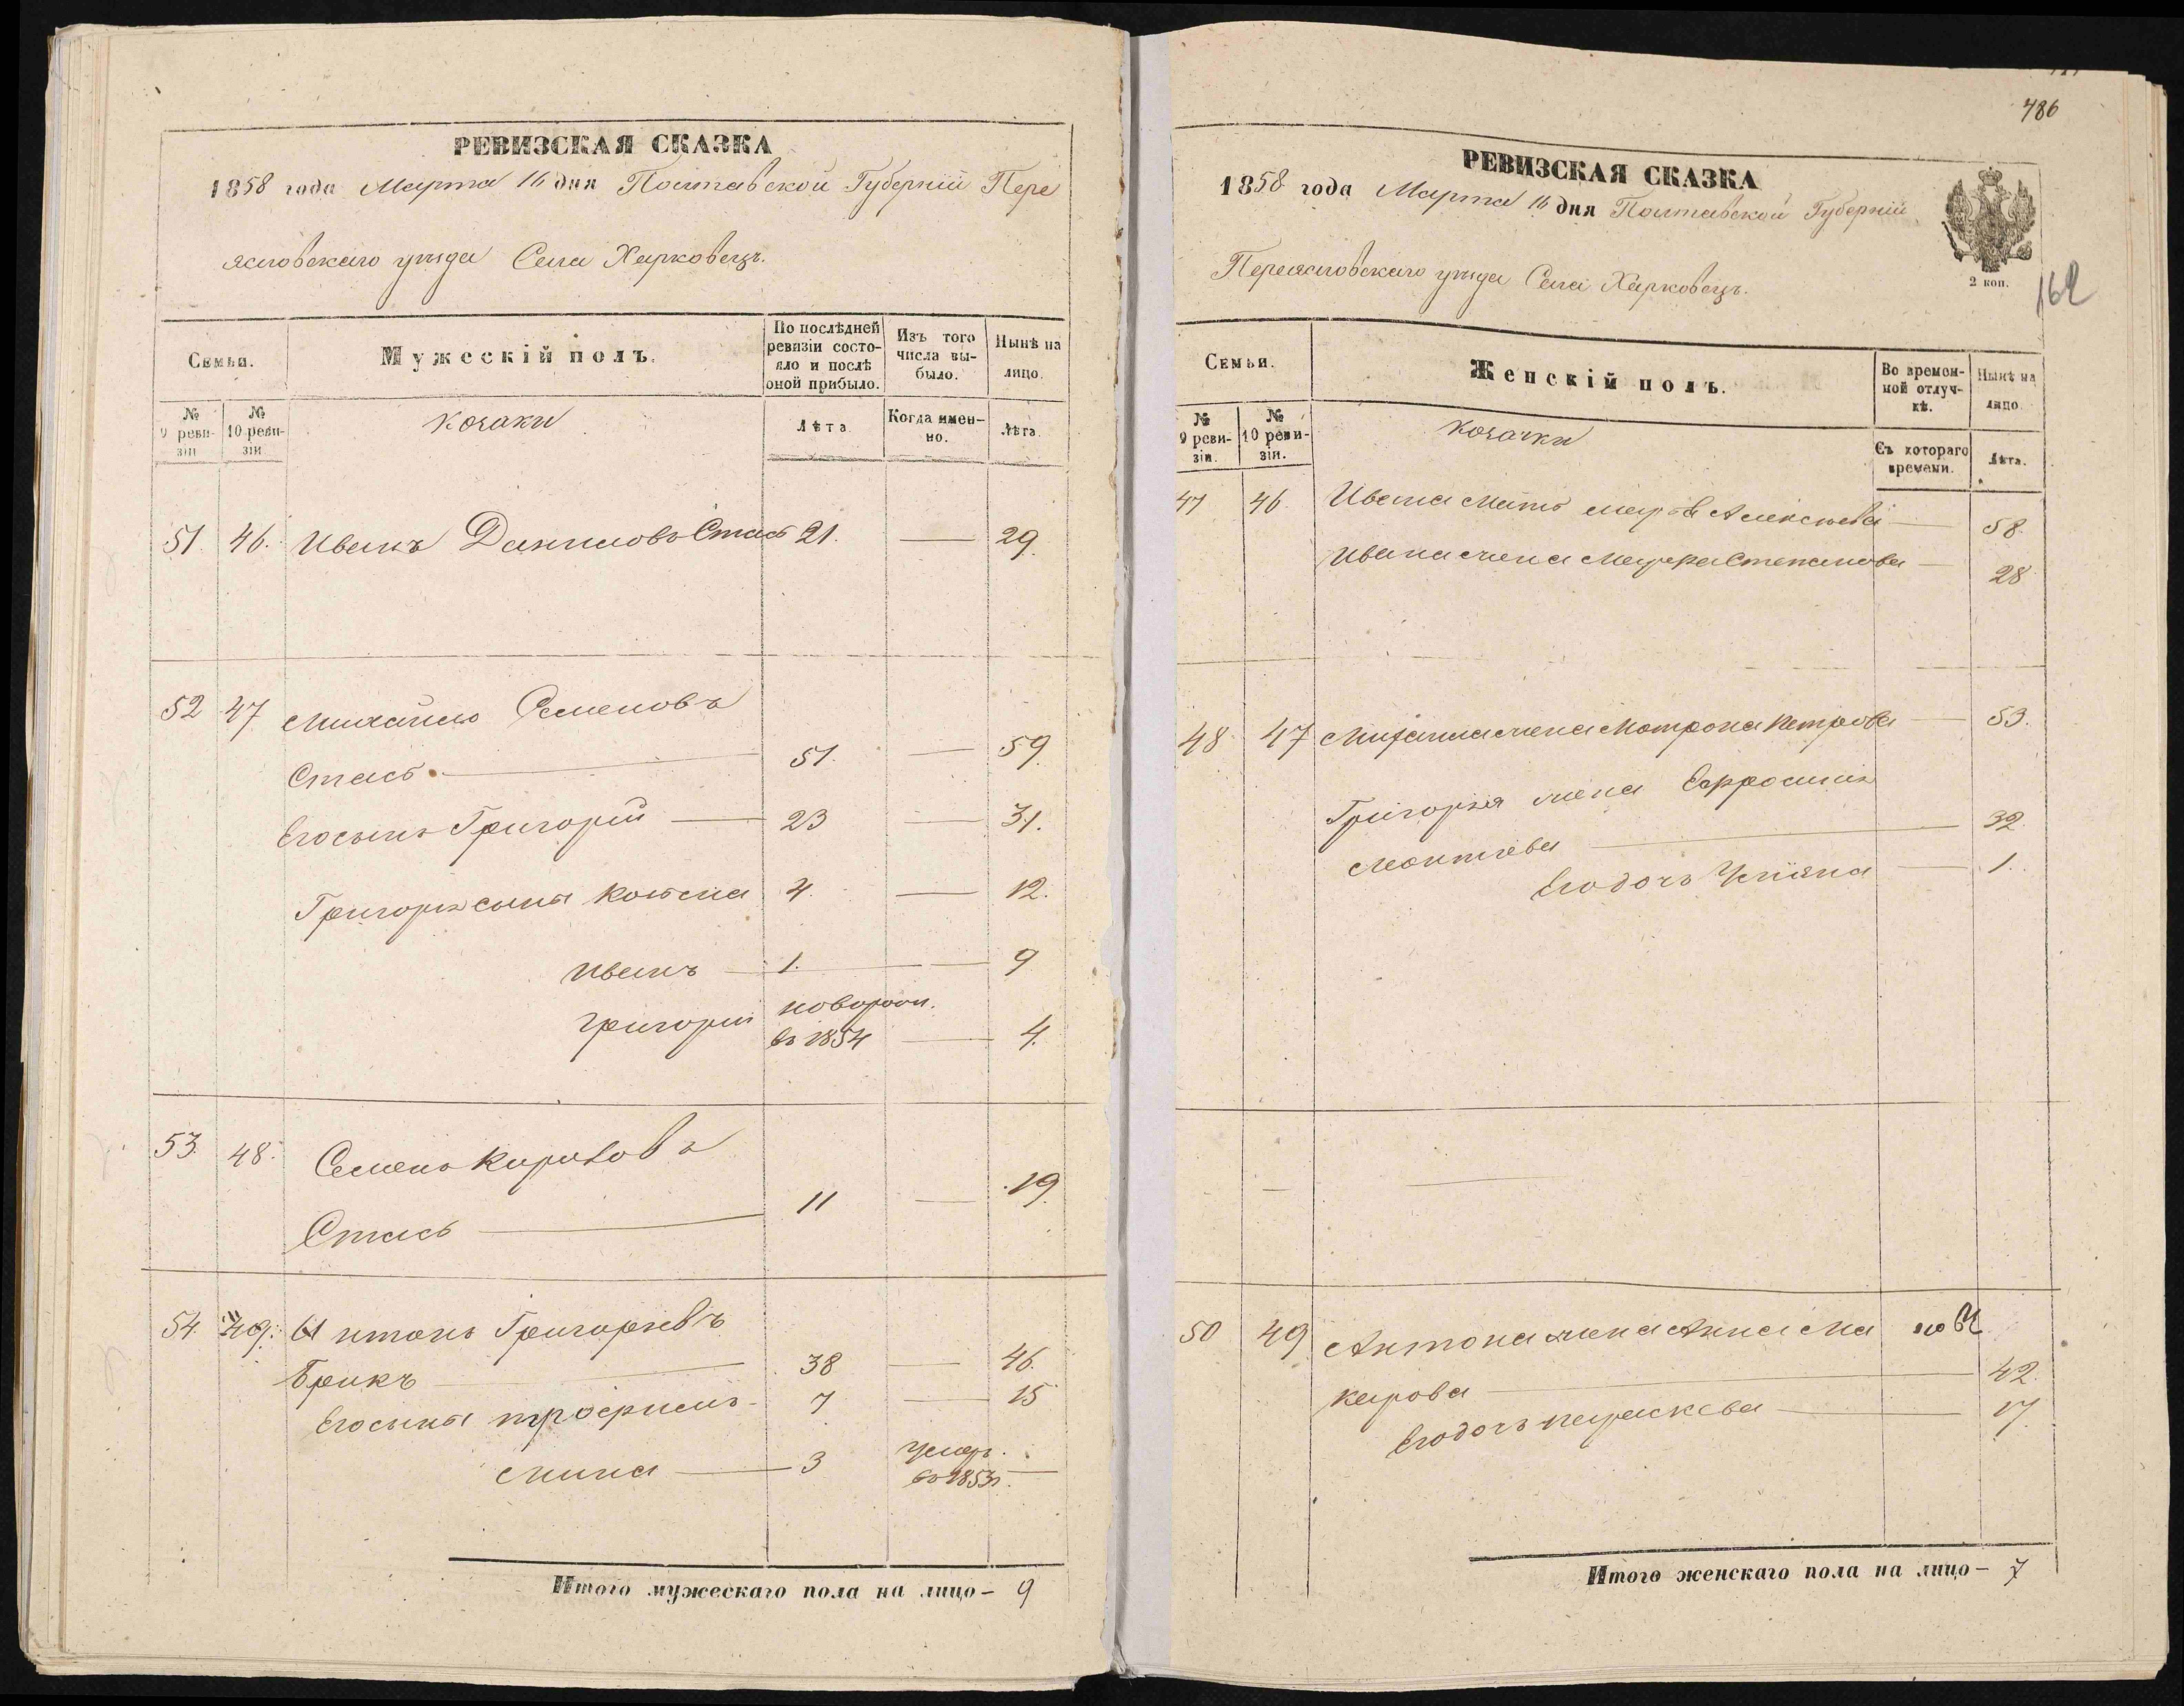 РЕВИЗСКАЯ СКАЗКА
1858 года Марта 16 дня Полтавской Губерніи Пере
яславскаго уѣзда Села Харковецъ.
Семьи.
Мужескій полъ.
По послѣдней ревизіи состояло и послѣ оной прибыло.
Изъ того числа выбыло.
Нынѣ на лицо.
№ 9 ревизіи
№ 10 ревизіи
козаки
Лѣта.
Когда именно.
Лѣта.
51. 46. Иванъ Даниловъ Стась 21. — 29.
52 47 Михайло Семеновъ
Стась — 51. — 59.
Его сынъ Григорій — 23 — 31.
Григорія сыны 4. — 12.
Иванъ — 1. — 9
Григорій новорож.
въ 1854 — 4.
53. 48. Семенъ Кириловъ
Стась — 11 — 19.
54. 49. Антонъ Григорьевъ
Брикъ — 38 — 46.
Его сыны Трофимъ 7 — 15
Мина — 3 умеръ.
въ 1853 —
Итого мужескаго пола на лицо — 9
786
РЕВИЗСКАЯ СКАЗКА
1858 года Марта 16 дня Полтавской Губерніи
Переяславскаго уѣзда Села Харковецъ.
2 коп.
162
Семьи.
Женскій полъ.
Во временной отлучкѣ.
Нынѣ на лицо.
№ 9 ревизіи.
№ 10 ревизіи.
козачки
Съ котораго времени.
Лѣта.
47 46 Ивана мать Алексѣева — 58.
Ивана жена Степанова — 28
48 47 Михайла жена Мотрона Петрова — 53.
Григорія жена Евфросинія
Леонтіева — 32.
Его дочь Уліяна — 1.
50 49 Антона жена Анна Ма
карова — 42.
Его дочь Параскева — 17.
Итого женскаго пола на лицо — 7